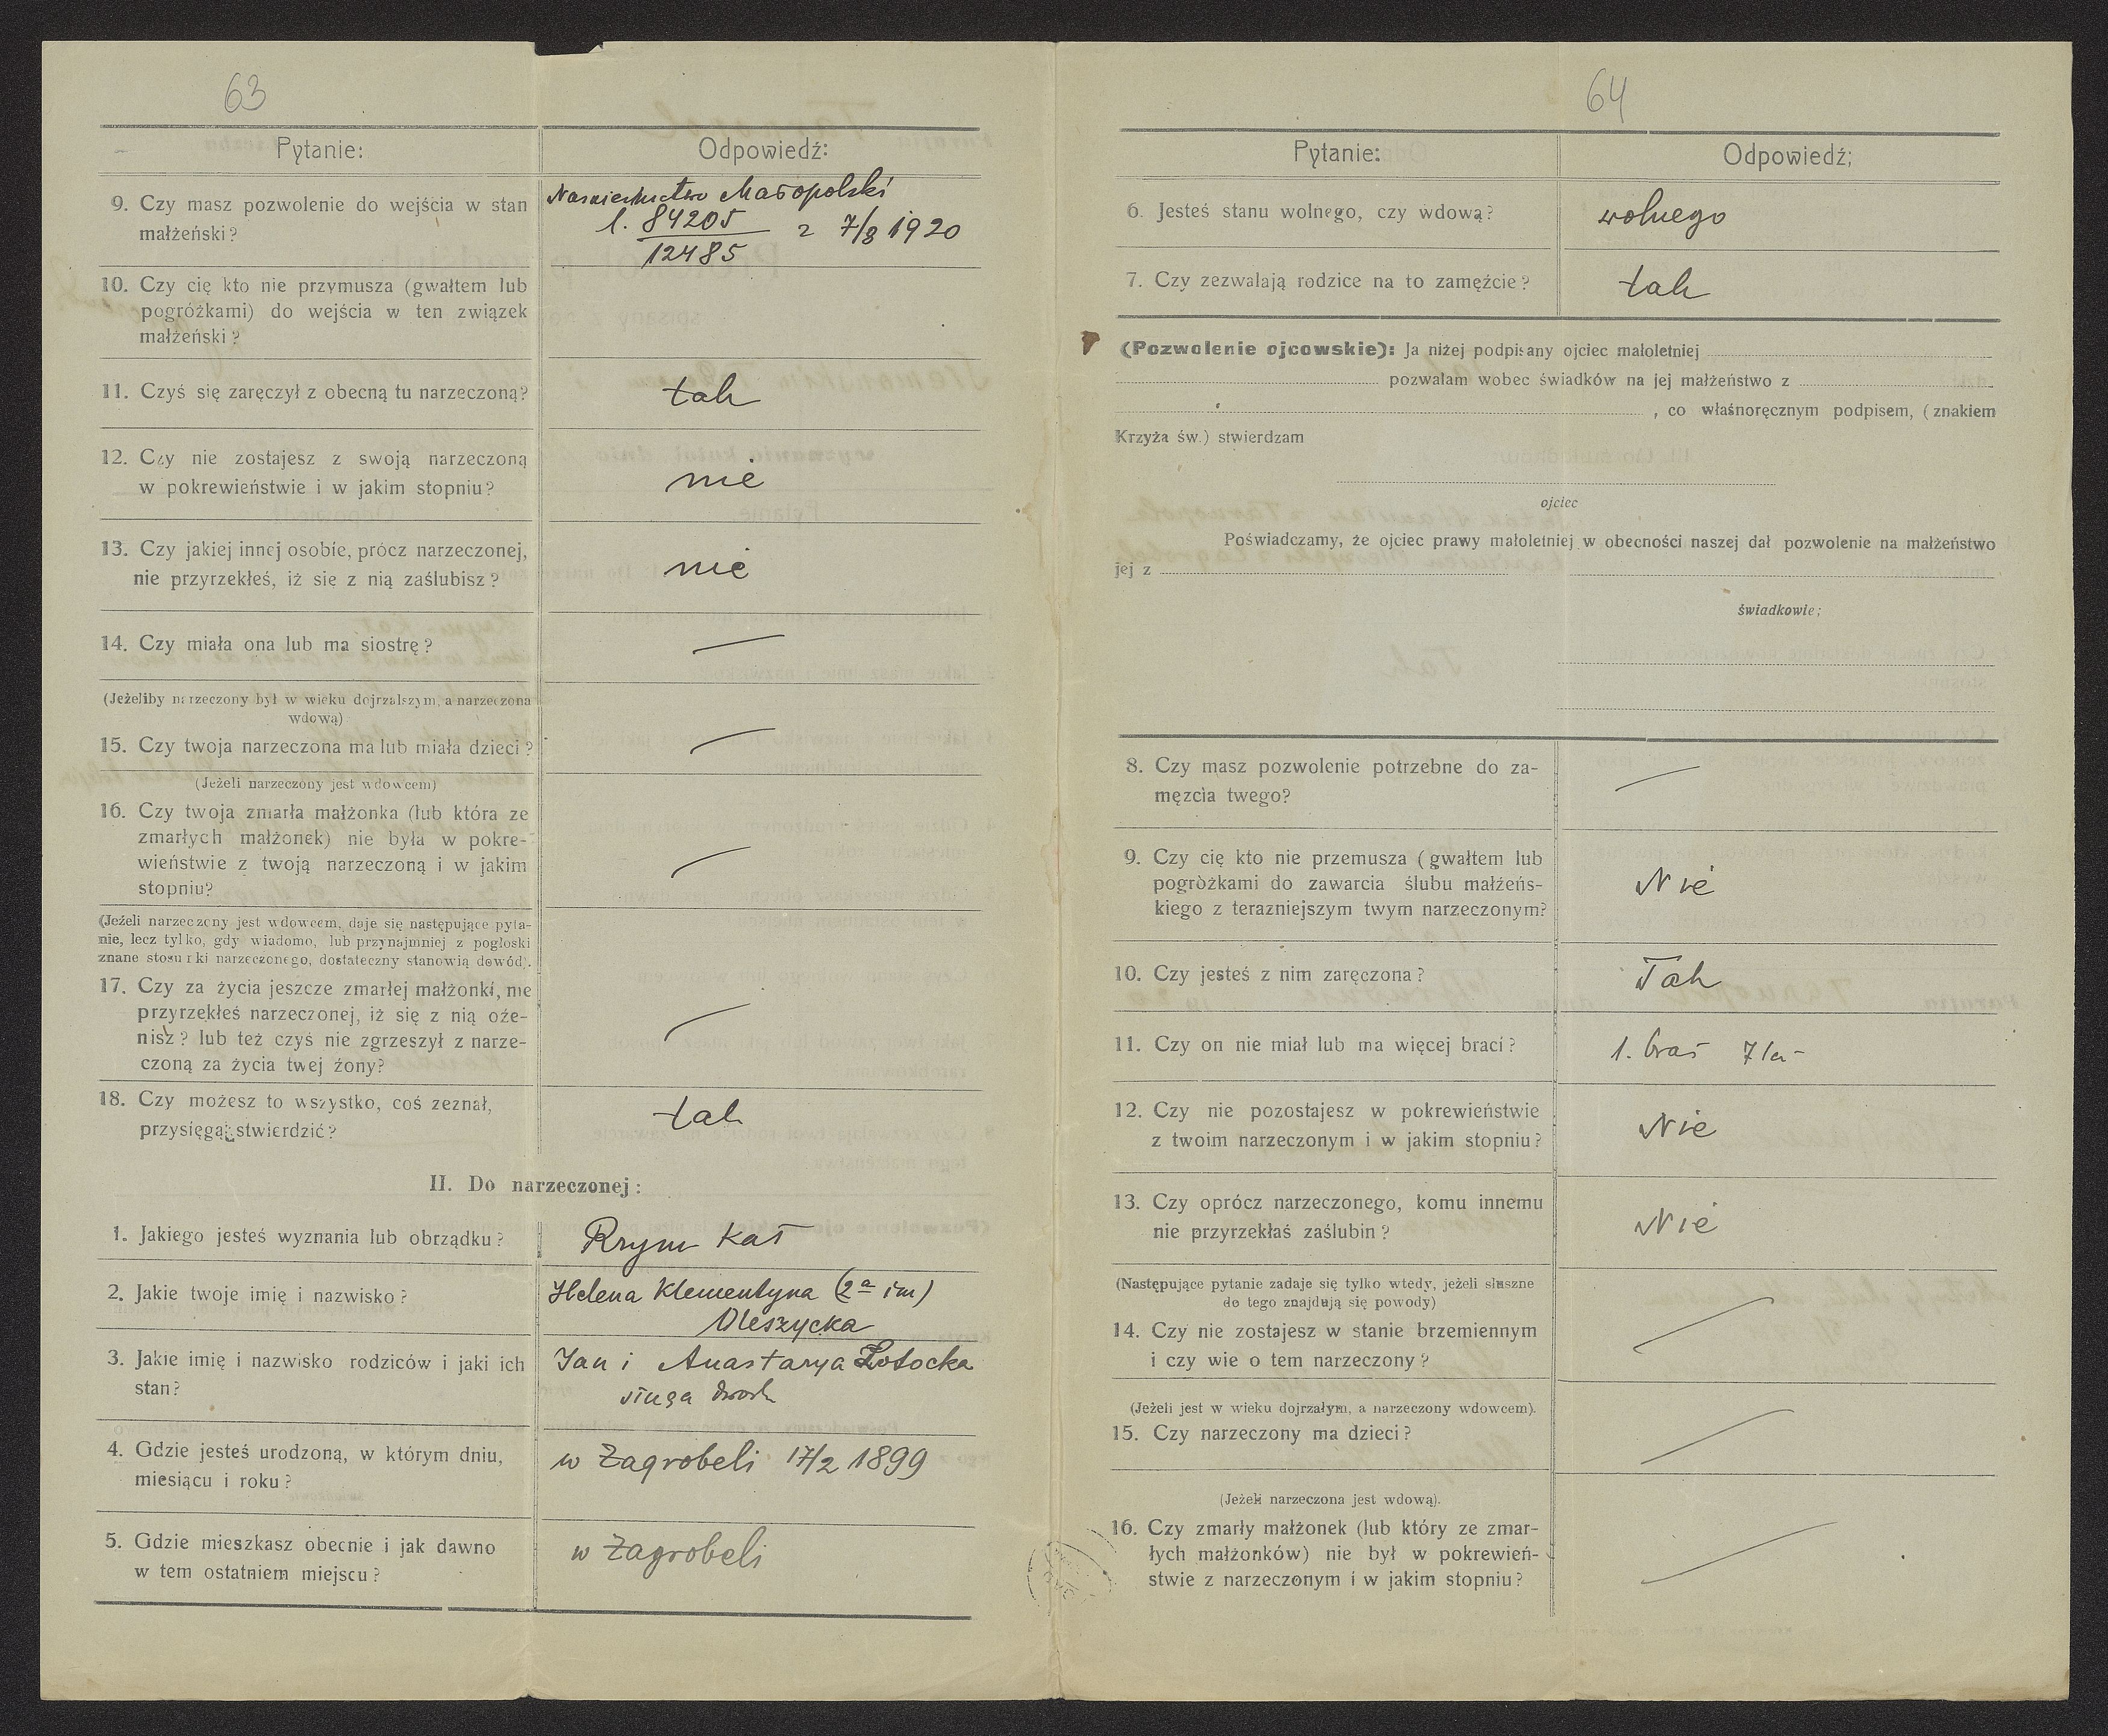 63
Pytanie:
Odpowiedź:
9. Czy masz pozwolenie do wejścia w stan
małżeński?
Namiestnictwo Małopolski
l. 84205 z 7/8 1920
12485
10. Czy cię kto nie przymusza (gwałtem lub
pogróżkami) do wejścia w ten związek
małżeński?
11. Czyś się zaręczył z obecną tu narzeczoną?
tak
12. Czy nie zostajesz z swoją narzeczoną
w pokrewieństwie i w jakim stopniu?
nie
13. Czy jakiej innej osobie, prócz narzeczonej,
nie przyrzekłeś, iż sie z nią zaślubisz?
nie
14. Czy miała ona lub ma siostrę?
—
(Jeżeliby narzeczony był w wieku dojrzalszym, a narzeczona
wdową)
15. Czy twoja narzeczona ma lub miała dzieci?
—
(Jeżeli narzeczony jest wdowcem)
16. Czy twoja zmarła małżonka (lub która ze
zmarłych małżonek) nie była w pokre-
wieństwie z twoją narzeczoną i w jakim
stopniu?
—
(Jeżeli narzeczony jest wdowcem, daje się następujące pyta-
nie, lecz tylko, gdy wiadomo, lub przynajmniej z pogłoski
znane stosunki narzeczonego, dostateczny stanowią dowód).
17. Czy za życia jeszcze zmarłej małżonki, nie
przyrzekłeś narzeczonej, iż się z nią oże-
nisz? lub też czyś nie zgrzeszył z narze-
czoną za życia twej żony?
—
18. Czy możesz to wszystko, coś zeznał,
przysięgą stwierdzić?
tak
II. Do narzeczonej:
1. Jakiego jesteś wyznania lub obrządku?
Rzym kat
2. Jakie twoje imię i nazwisko?
Helena Klementyna (2a im)
Oleszycka
3. Jakie imię i nazwisko rodziców i jaki ich
stan?
Jan i Anastazya Potocka
sługa dwork
4. Gdzie jesteś urodzoną, w którym dniu,
miesiącu i roku?
w Zagrobeli 17/2 1899
5. Gdzie mieszkasz obecnie i jak dawno
w tem ostatniem miejscu?
w Zagrobeli
64
Pytanie:
Odpowiedź;
6. Jesteś stanu wolnego, czy wdową?
wolnego
7. Czy zezwalają rodzice na to zamęźcie?
tak
(Pozwolenie ojcowskie): Ja niżej podpisany ojciec małoletniej
pozwalam wobec świadków na jej małżeństwo z
, co własnoręcznym podpisem, (znakiem
Krzyża św.) stwierdzam
ojciec
Poświadczamy, że ojciec prawy małoletniej w obecności naszej dał pozwolenie na małżeństwo
jej z
świadkowie;
8. Czy masz pozwolenie potrzebne do za-
męzcia twego?
—
9. Czy cię kto nie przemusza (gwałtem lub
pogròżkami do zawarcia ślubu małżeńs-
kiego z terazniejszym twym narzeczonym?
Nie
10. Czy jesteś z nim zaręczona?
Tak
11. Czy on nie miał lub ma więcej braci?
1. brat 7 lat
12. Czy nie pozostajesz w pokrewieństwie
z twoim narzeczonym i w jakim stopniu?
Nie
13. Czy oprócz narzeczonego, komu innemu
nie przyrzekłaś zaślubin?
Nie
(Następujące pytanie zadaje się tylko wtedy, jeżeli słuszne
do tego znajdują się powody)
14. Czy nie zostajesz w stanie brzemiennym
i czy wie o tem narzeczony?
—
(Jeżeli jest w wieku dojrzałym, a narzeczony wdowcem).
15. Czy narzeczony ma dzieci?
—
(Jeżeli narzeczona jest wdową).
16. Czy zmarły małżonek (lub który ze zmar-
łych małżonków) nie był w pokrewień-
stwie z narzeczonym i w jakim stopniu?
—